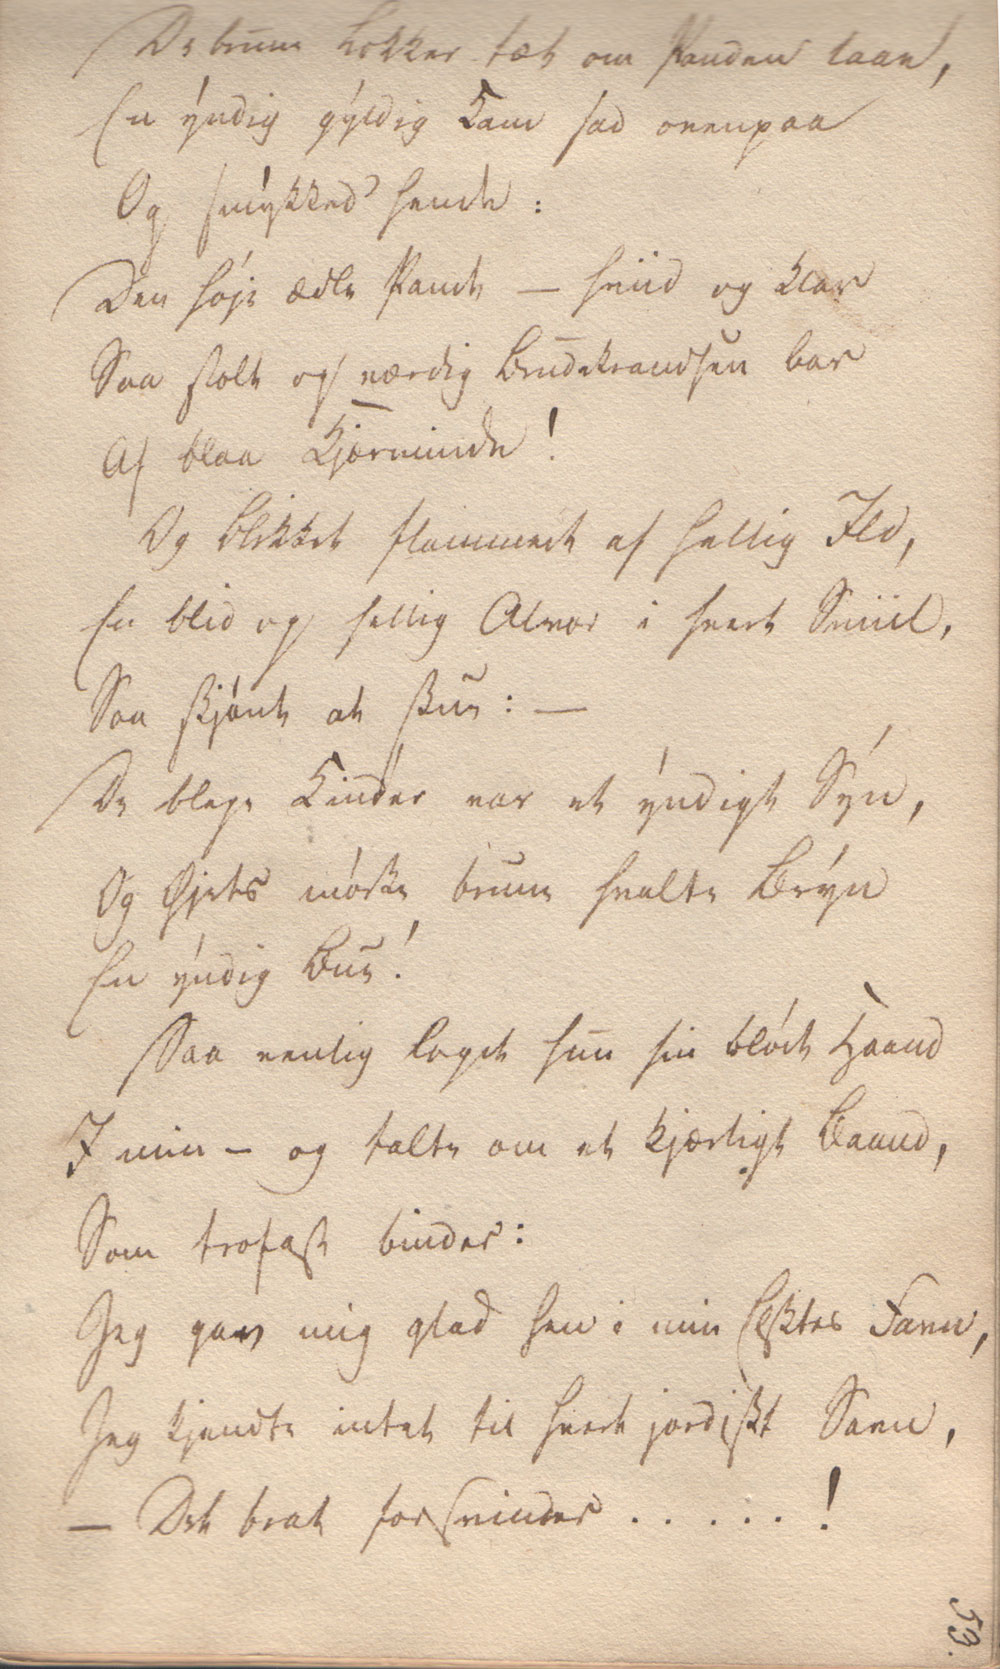 De brune Lokker tæt om Panden laae,
En yndig gyldig Kam sad ovenpaa
Og smykked' hende:
Den høje ædle Pande — hviid og klar
Saa stolt og værdig Brudekrandsen bar
Af blaa Kjærminde!
Og Blikket flammede af hellig Ild,
En blid og hellig Alvor i hvert Smiil,
Saa skjønt at skue: —
De blege Kinder var et yndigt Syn,
Og Øjets mørke, brune hvalte Bryn
En yndig Bue!
Saa venlig lagde hun sin bløde Haand
I min — og talte om et kjærligt Baand,
Som trofast binder:
Jeg gav mig glad hen i min Elsktes Favn,
Jeg kjendte intet til hvert jordiskt Savn,
— Det brat forsvinder . . . . . !
53.